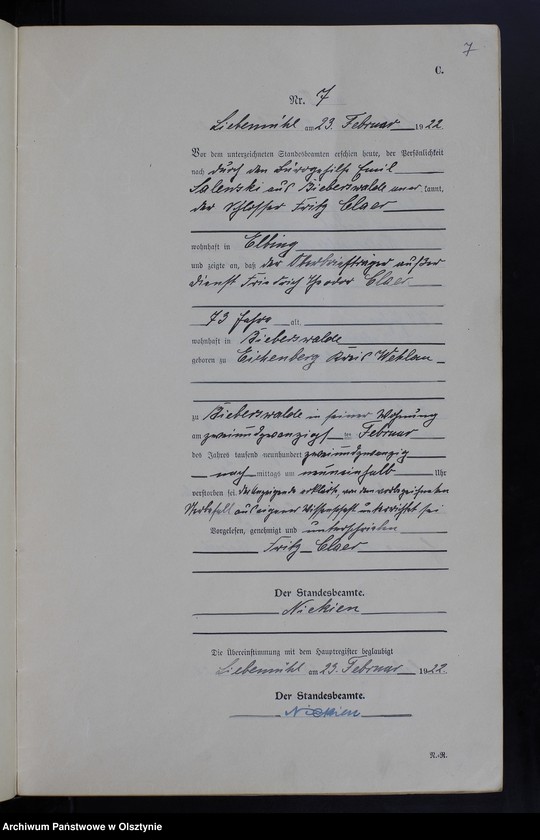 7
C.
Nr. 7
Liebemühl am 23. Februar 1922
Vor dem unterzeichneten Standesbeamten erschien heute, der Persönlichkeit
nach durch den Bürogehilfe Emil
Salewski aus Bieberswalde aner kannt,
der Schlosser Fritz Claer
wohnhaft in Elbing
und zeigte an, daß der Oberbriefträger außer
Dienst Friedrich Theodor Claer
73 Jahre alt,
wohnhaft in Bieberswalde
geboren zu Eichenberg Kreis Wehlau
zu Bieberswalde in seiner Wohnung
am zweiundzwanzigst ten Februar
des Jahres tausend neunhundert zweiundzwanzig
nach mittags um neuneinhalb Uhr
verstorben sei. Der Anzeigende erklärte, von dem vorbezeichneten
Sterbefall aus eigener Wissenschaft unterrichtet sei
Vorgelesen, genehmigt und unterschrieben
Fritz Claer
Der Standesbeamte.
Nickien
Die Übereinstimmung mit dem Hauptregister beglaubigt
Liebemühl am 23. Februar 1922.
Der Standesbeamte.
Nickien
N.-R.
Archiwum Państwowe w Olsztynie